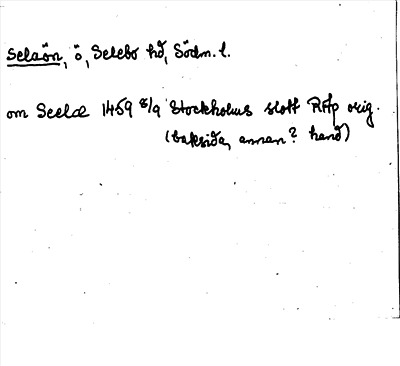 Selaön, ö, Selebo hd, Södm. l.
om Seelæ 1459 8/9 Stockholms slott RAp orig.
(baksida, annan? hand)